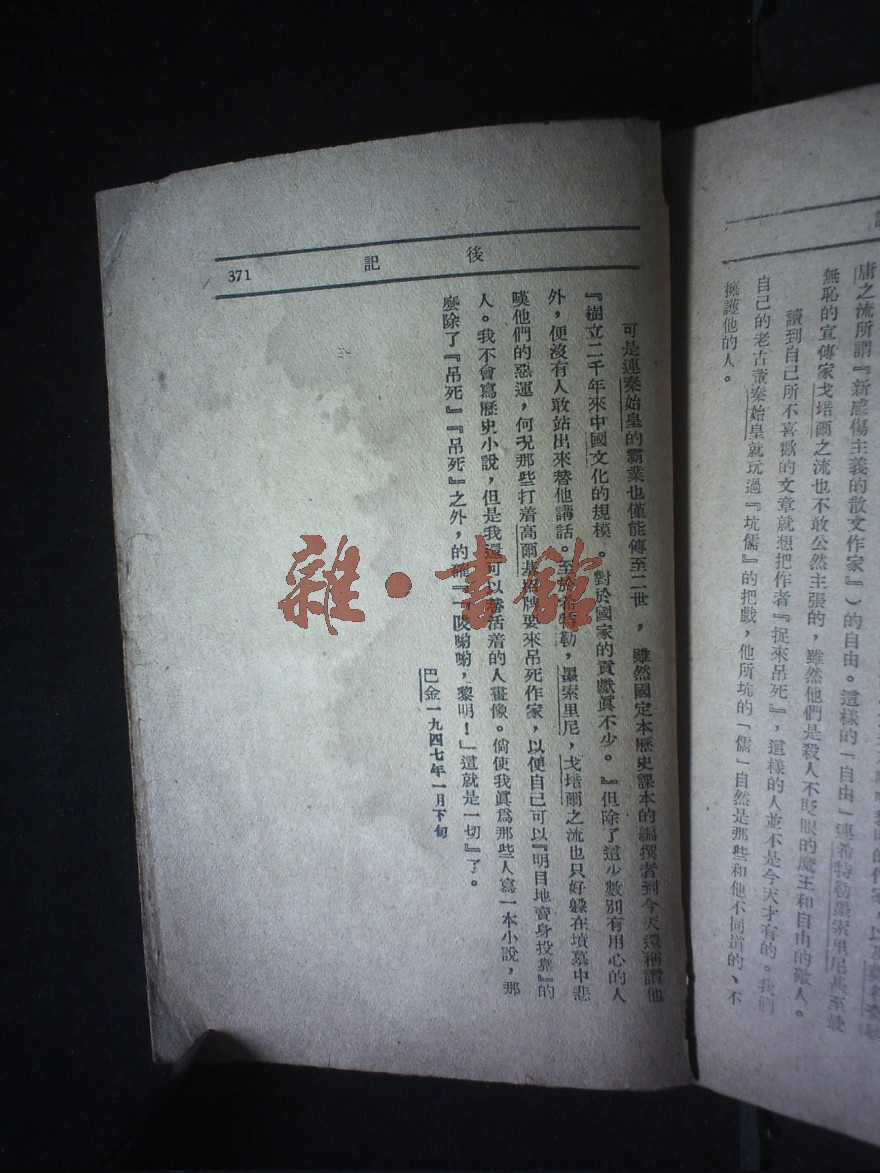 庸之流所謂『新感傷主義的散文作家』）的自由。這樣的「自由」連希特勒墨索里尼甚至最
無恥的宣傳家戈培爾之流也不敢公然主張的，雖然他們是殺人不眨眼的魔王和自由的敵人。
讀到自己所不喜歡的文章就想把作者『捉來吊死』，這樣的人並不是今天才有的。我們
自己的老古董秦始皇就玩過『坑儒』的把戲，他所坑的「儒」自然是那些和他不同道的、不
擁護他的人。
後記
371
可是連秦始皇的霸業也僅能傳至二世，雖然國定本歷史課本的編撰者到今天還稱讚他
『樹立二千年來中國文化的規模。對於國家的貢獻真不少。』但除了這少數別有用心的人
外，便沒有人敢站出來替他講話。至於希特勒，墨索里尼，戈培爾之流也只好躲在墳墓中悲
嘆他們的惡運，何況那些打着高爾基招牌要來吊死作家，以便自己可以『明目地賣身投靠』的
人。我不會寫歷史小說，但是我還可以替活着的人畫像。倘使我真爲那些人寫一本小說，那
麽除了『吊死』『吊死』之外，的確『一陂喲喲，黎明！」這就是一切』了。
巴金一九四七年一月下旬
雜·書館